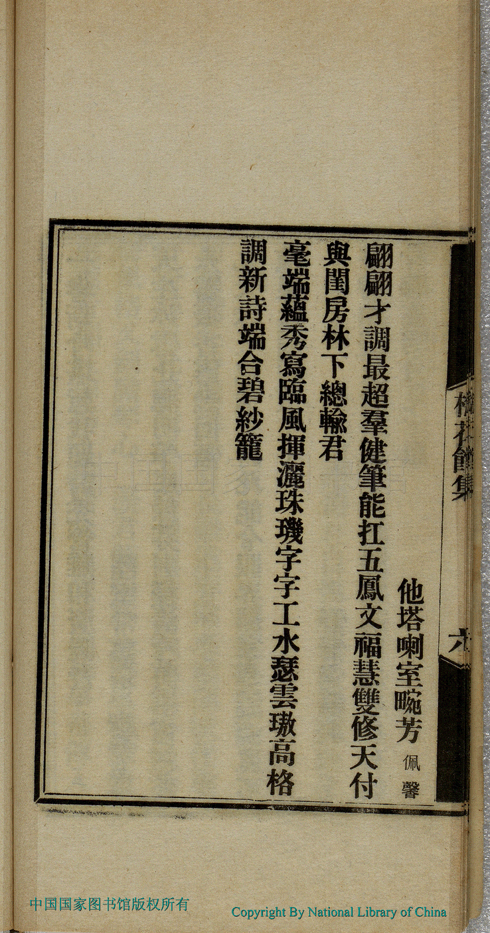 他塔喇室畹芳佩馨
翩翩才調最超羣健筆能扛五鳳文福慧雙修天付
與閨房林下總輸君
毫端蘊秀寫臨風揮灑珠璣字字工水瑟雲璈高格
調新詩端合碧紗籠
六
中国国家图书馆版权所有
Copyright By National Library of China